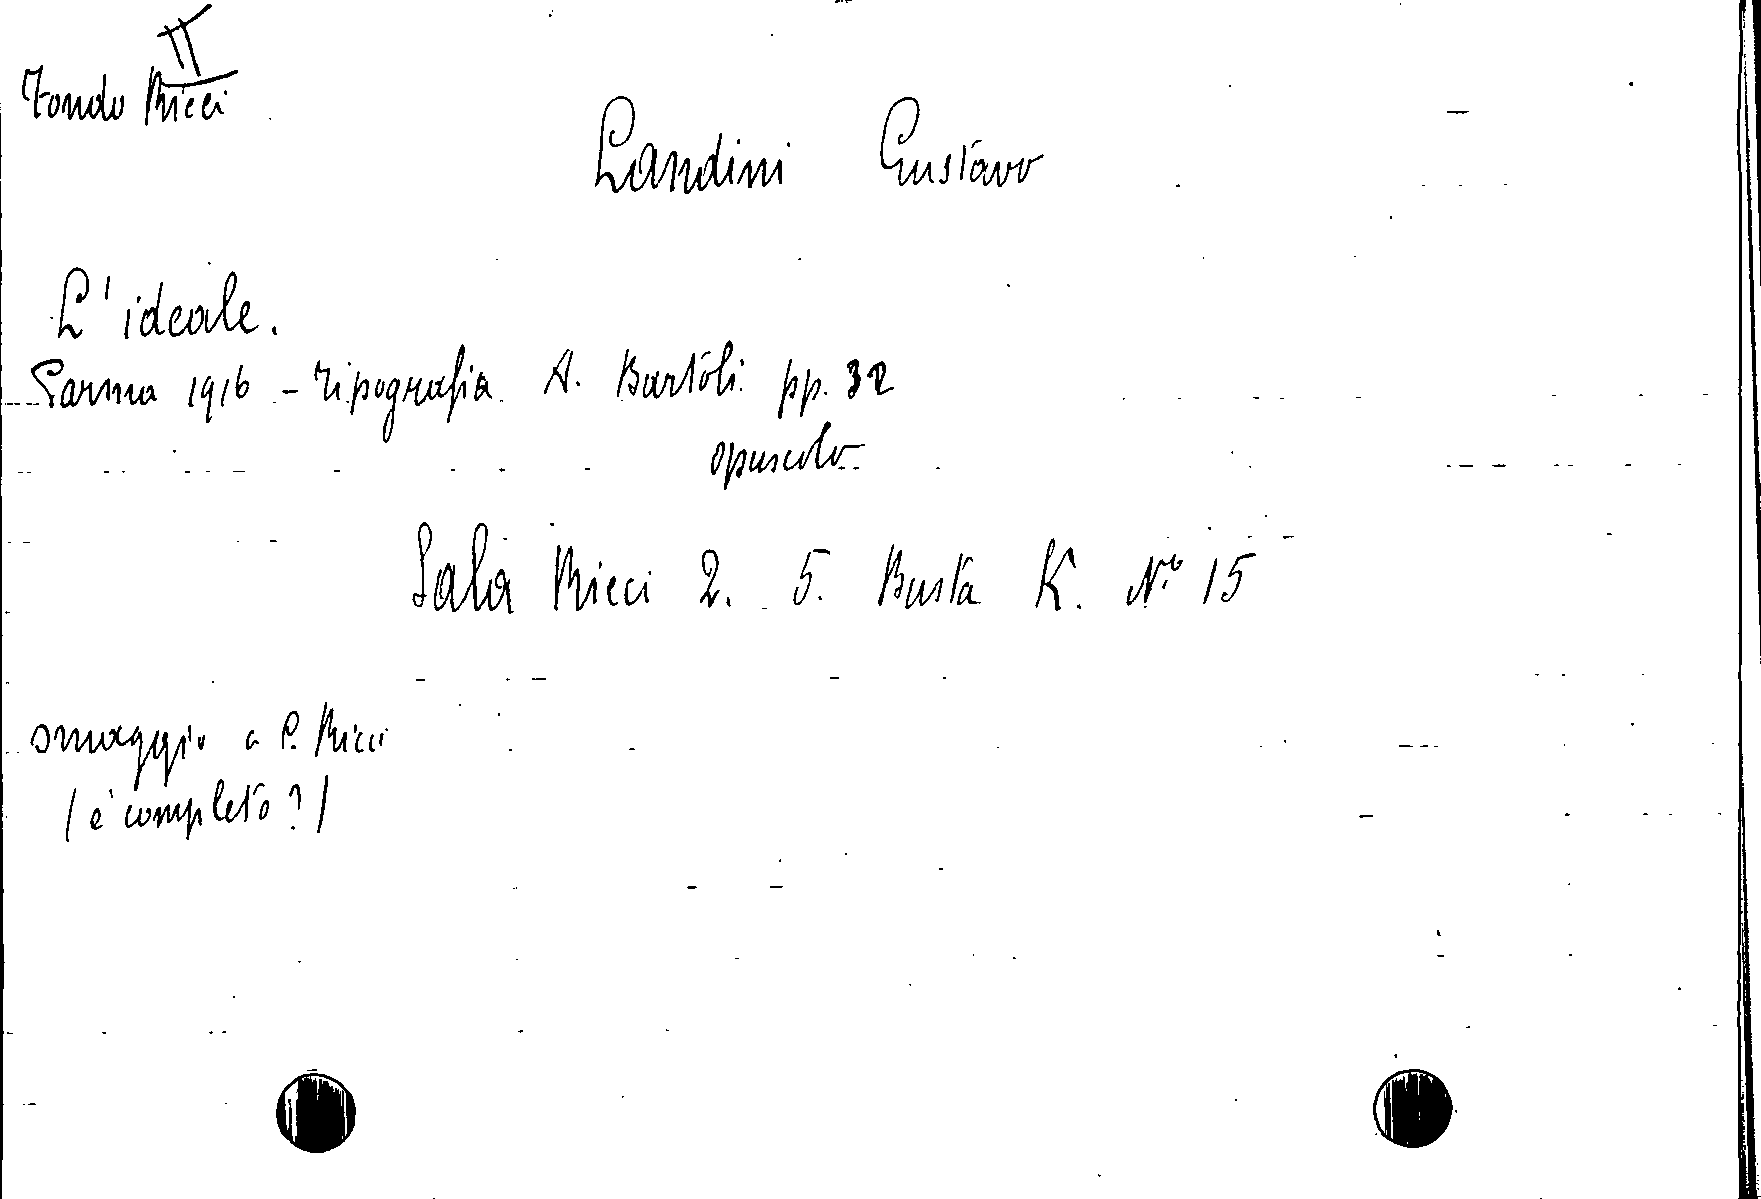 II
Fondo Ricci
Landini Gustavo
L'ideale.
Parma 1916 - Tipografia A. Bartoli pp. 32
opuscolo
Sala Ricci 2. 5. Busta K. N.o 15
omaggio a P. Ricci
/ è completo? /